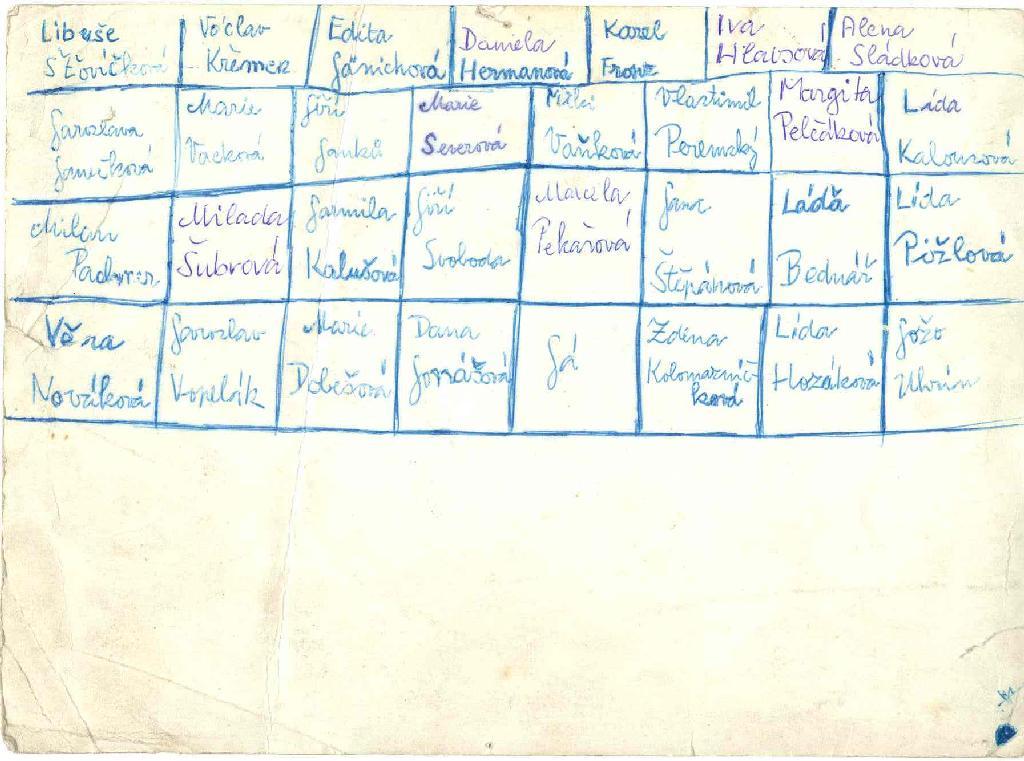 Libuše
Sťovíčková
Václav
Křemer
Edita
Jánichová
Daniela
Hermanová
Karel
Iva
Hlaisová
Alena
Sládková
Jaroslava
Marie
Vacková
Jiří
Janků
Marie
Severová
Vaňková
Vlastimil
Margita
Pelčáková
Láda
Kalousová
Milan
Milada
Šubrová
Jarmila
Kalušová
Jiří
Svoboda
Marcela
Pekařová
Jana
Štěpánová
Láďa
Bednář
Lída
Věra
Nováková
Jaroslav
Vopelák
Marie
Dobešová
Dana
Jonášová
Já
Zdena
Kolomazníč-
ková
Lída
Hozáková
Jožo
Uhrin